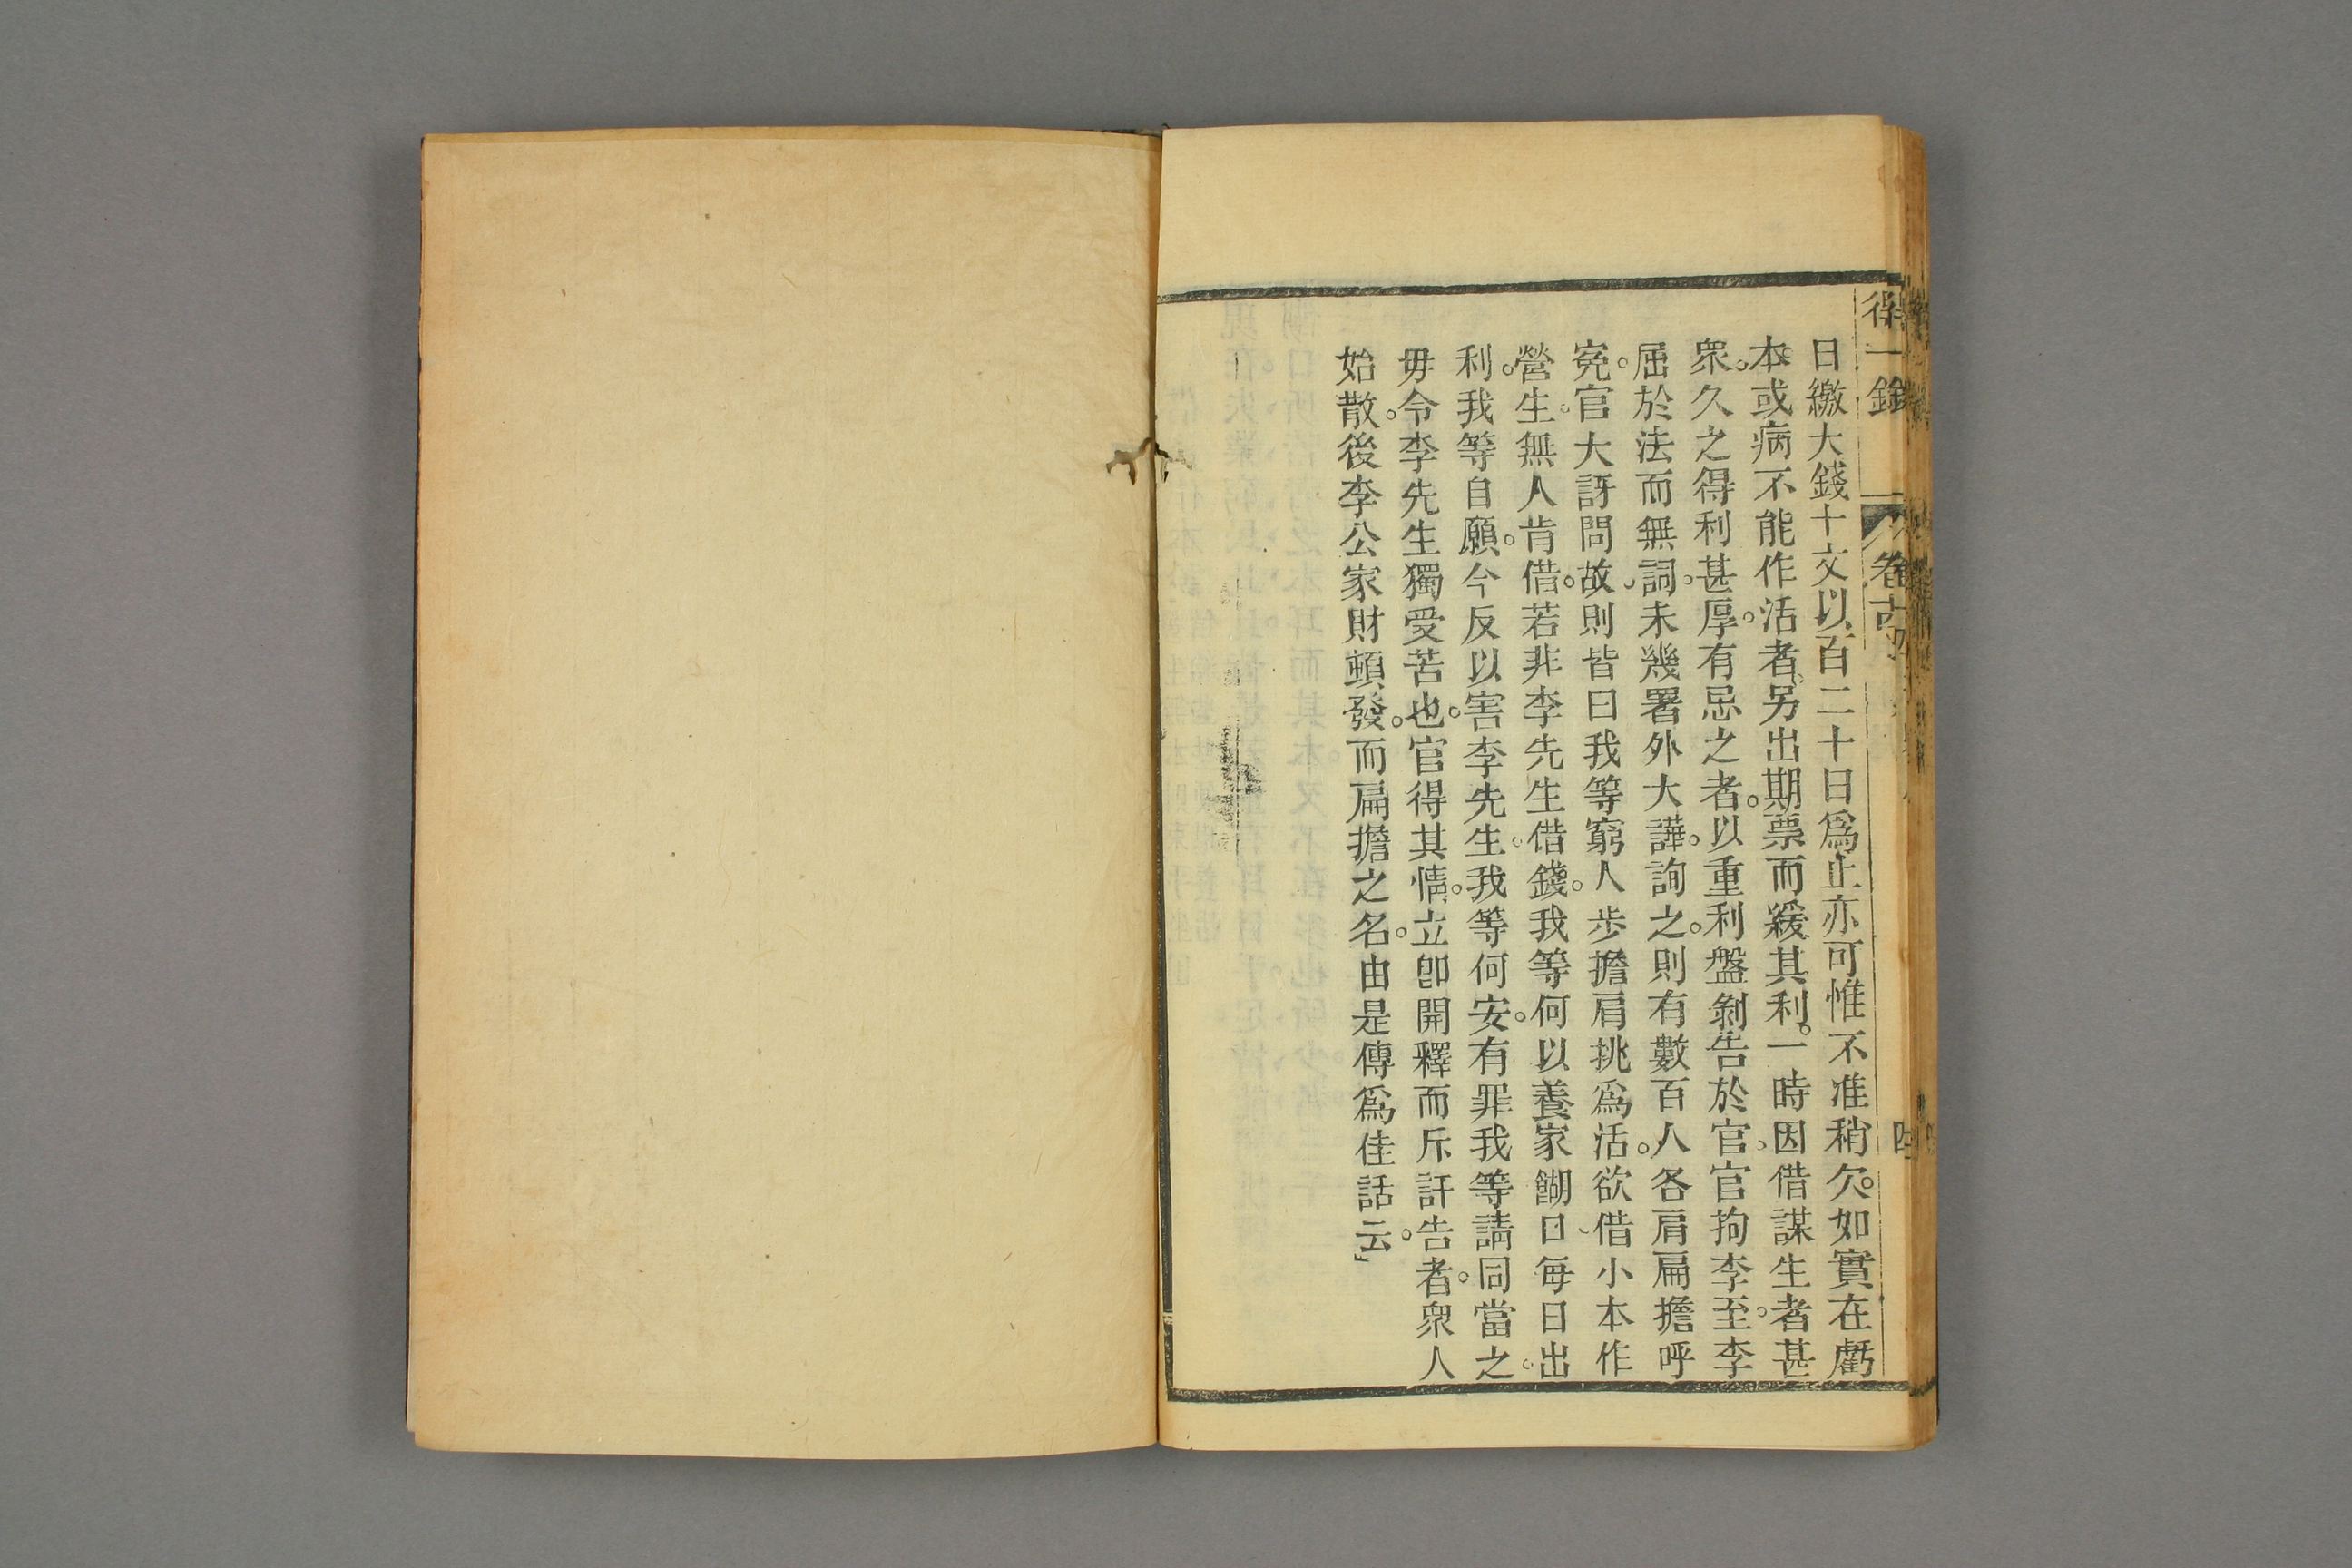 得一錄
卷古
日繳大錢十文以百二十日爲止亦可惟不准稍欠。如實在虧
本或病不能作活者。另出期票而緩其利。一時因借謀生者甚
衆。久之得利甚厚。有忌之者。以重利盤剝告於官。官拘李至。李
屈於法而無詞。未幾署外大譁。詢之。則有數百人各肩扁擔呼
寃。官大訝問故。則皆曰我等窮人步擔肩挑爲活。欲借小本作
營生。無人肯借。若非李先生借錢。我等何以養家餬口。每日出
利。我等自願。今反以害李先生。我等何安。有罪我等請同當之。
毋令李先生獨受苦也。官得其情。立卽開釋而斥訐告者。衆人
始散。後李公家財頓發。而扁擔之名。由是傳爲佳話云。